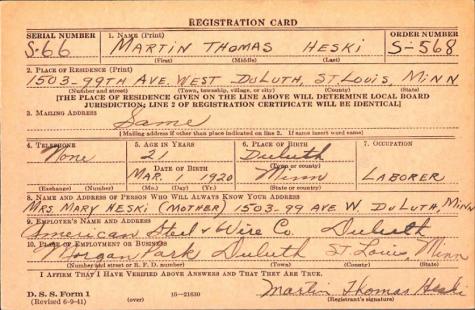 REGISTRATION CARD
SERIAL NUMBER 1. NAME (Print) ORDER NUMBER
S-66 MARTIN THOMAS HESKI S-568
(First) (Middle) (Last)
2. PLACE OF RESIDENCE (Print)
1503-99TH AVE. WEST DULUTH, ST. LOUIS, MINN
(Number and street) (Town, township, village, or city) (County) (State)
[THE PLACE OF RESIDENCE GIVEN ON THE LINE ABOVE WILL DETERMINE LOCAL BOARD
JURISDICTION; LINE 2 OF REGISTRATION CERTIFICATE WILL BE IDENTICAL]
3. MAILING ADDRESS
Same
[Mailing address if other than place indicated on line 2. If same insert word same]
4. TELEPHONE 5. AGE IN YEARS 6. PLACE OF BIRTH 7. OCCUPATION
None 21 Duluth
(Town or county)
DATE OF BIRTH
MAR. 1 1920 Minn LABORER
(Exchange) (Number) (Mo.) (Day) (Yr.) (State or country)
8. NAME AND ADDRESS OF PERSON WHO WILL ALWAYS KNOW YOUR ADDRESS
MRS MARY HESKI (MOTHER) 1503-99 AVE W. DULUTH, MINN
9. EMPLOYER'S NAME AND ADDRESS
American Steel & Wire Co. Duluth
10. PLACE OF EMPLOYMENT OR BUSINESS
Morgan Park Duluth St Louis, Minn
(Number and street or R. F. D. number) (Town) (County) (State)
I AFFIRM THAT I HAVE VERIFIED ABOVE ANSWERS AND THAT THEY ARE TRUE.
D. S. S. Form 1
(Revised 6-9-41) (over) 16-21630 Martin Thomas Heski
(Registrant's signature)